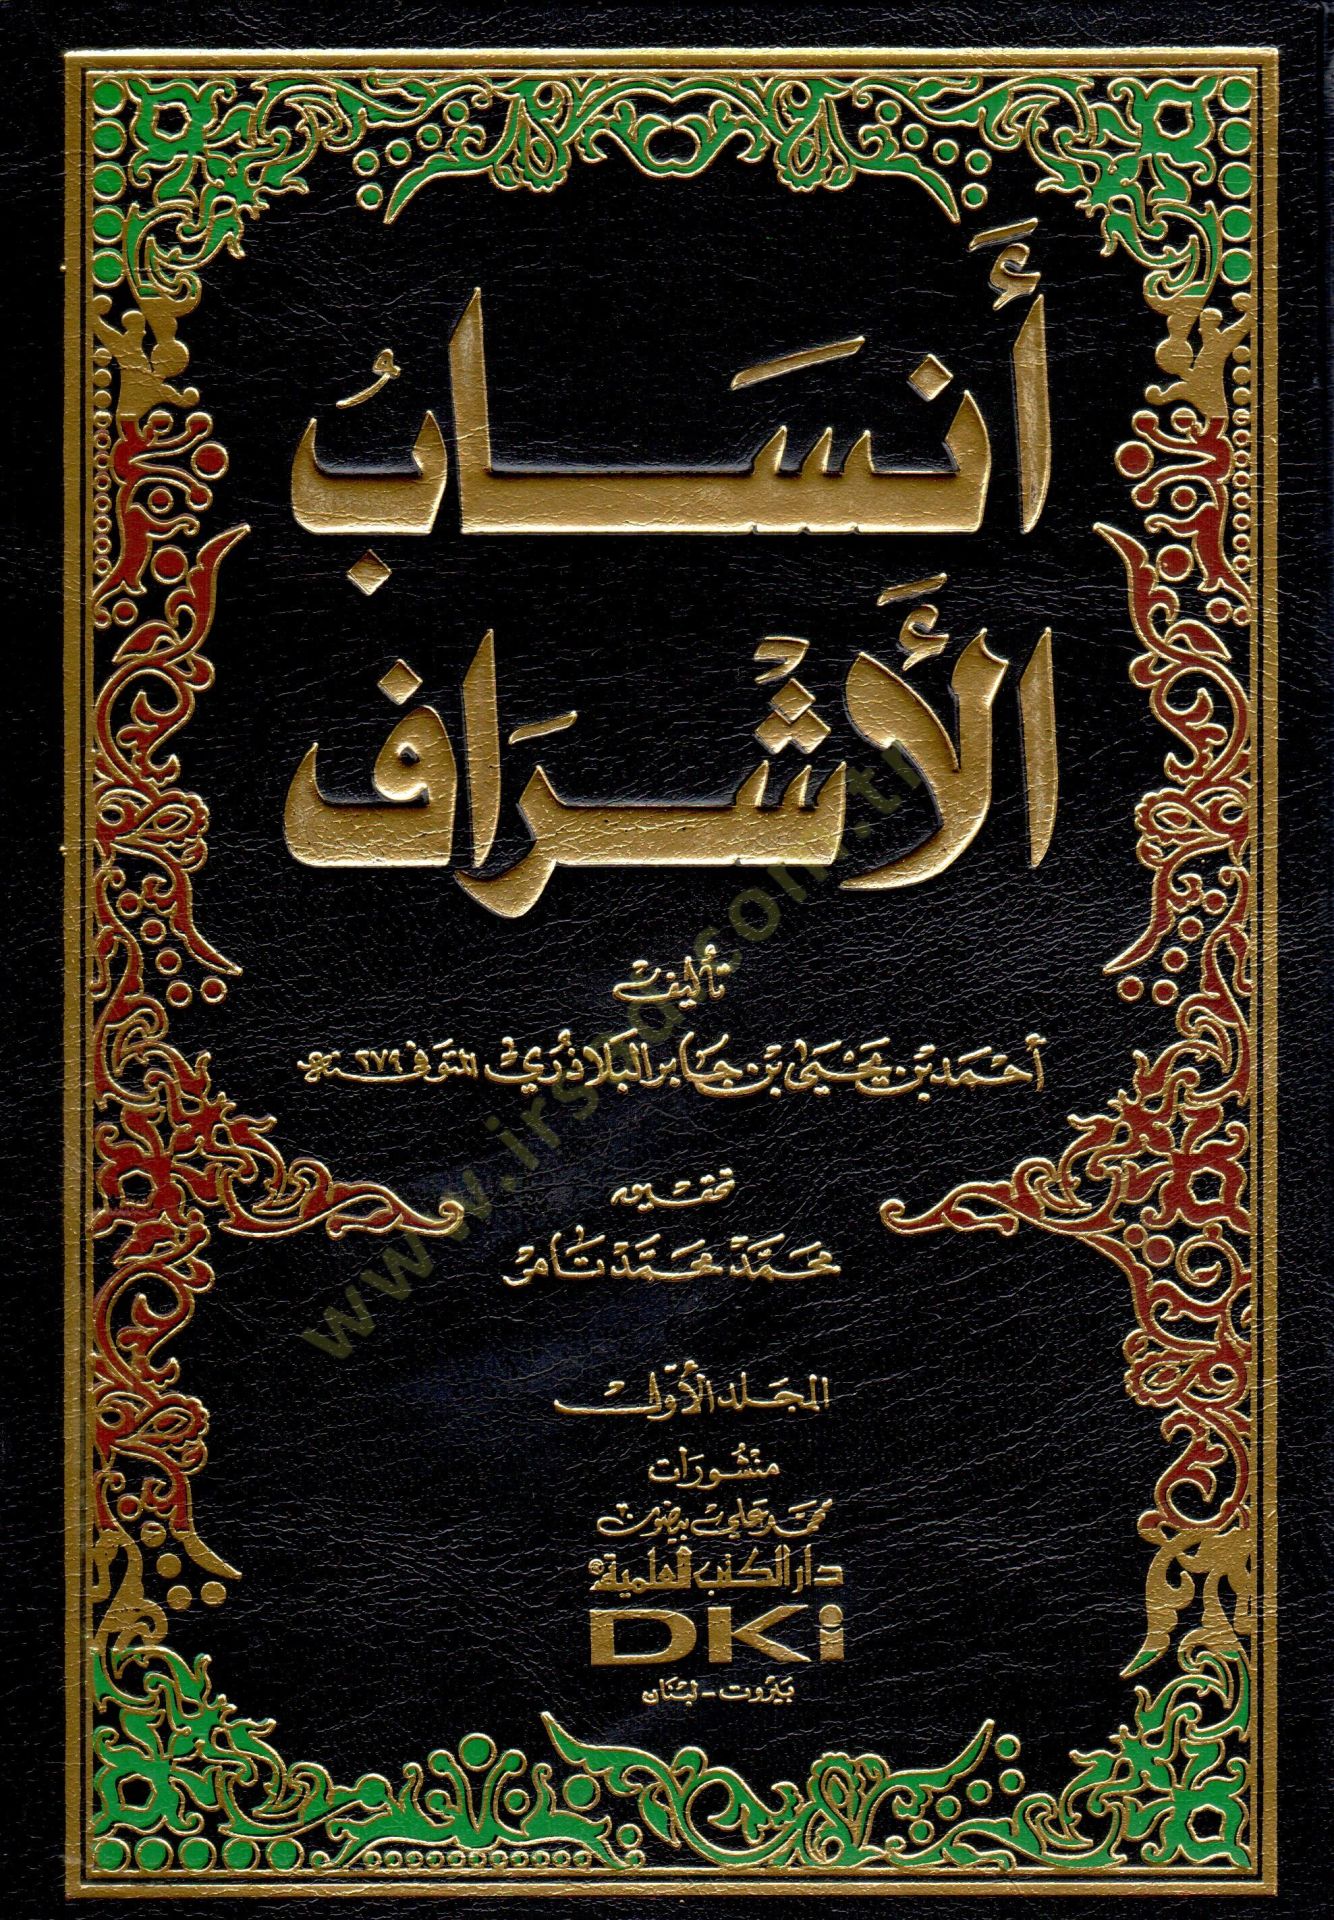 أَنسَابُ
الأَشْرَاف
تأليف
أحمد بن يحيى بن جابر البلاذُري المتوفى ٢٧٩هـ
تحقيق
محمّد محمّد تامر
المجلد الأوّل
منشورات
محمد علي بيضون
دار الكتب العلمية
DKi
بيروت - لبنان
www.irsad.com.tr